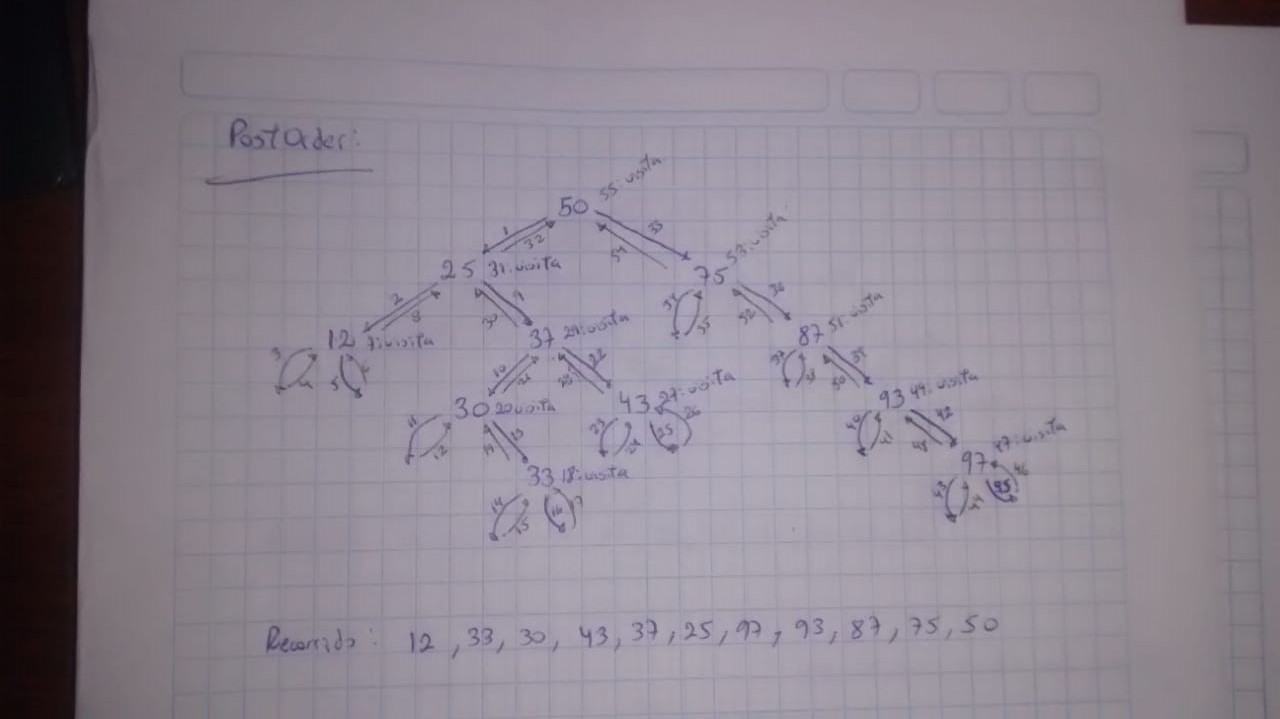 PostOrder:
50 55:visita
1 32 33 54
25 31:visita 75 53:visita
2 8 9 30 34 35 36 52
12 7:visita 37 29:visita 87 51:visita
3 4 5 6 10 21 22 28 37 38 39 50
30 20 visita 43 27:visita 93 49:visita
11 12 13 19 23 24 25 26 40 41 42 48
33 18:visita 97 47:visita
14 15 16 17 43 44 45 46
Recorrido: 12, 33, 30, 43, 37, 25, 97, 93, 87, 75, 50